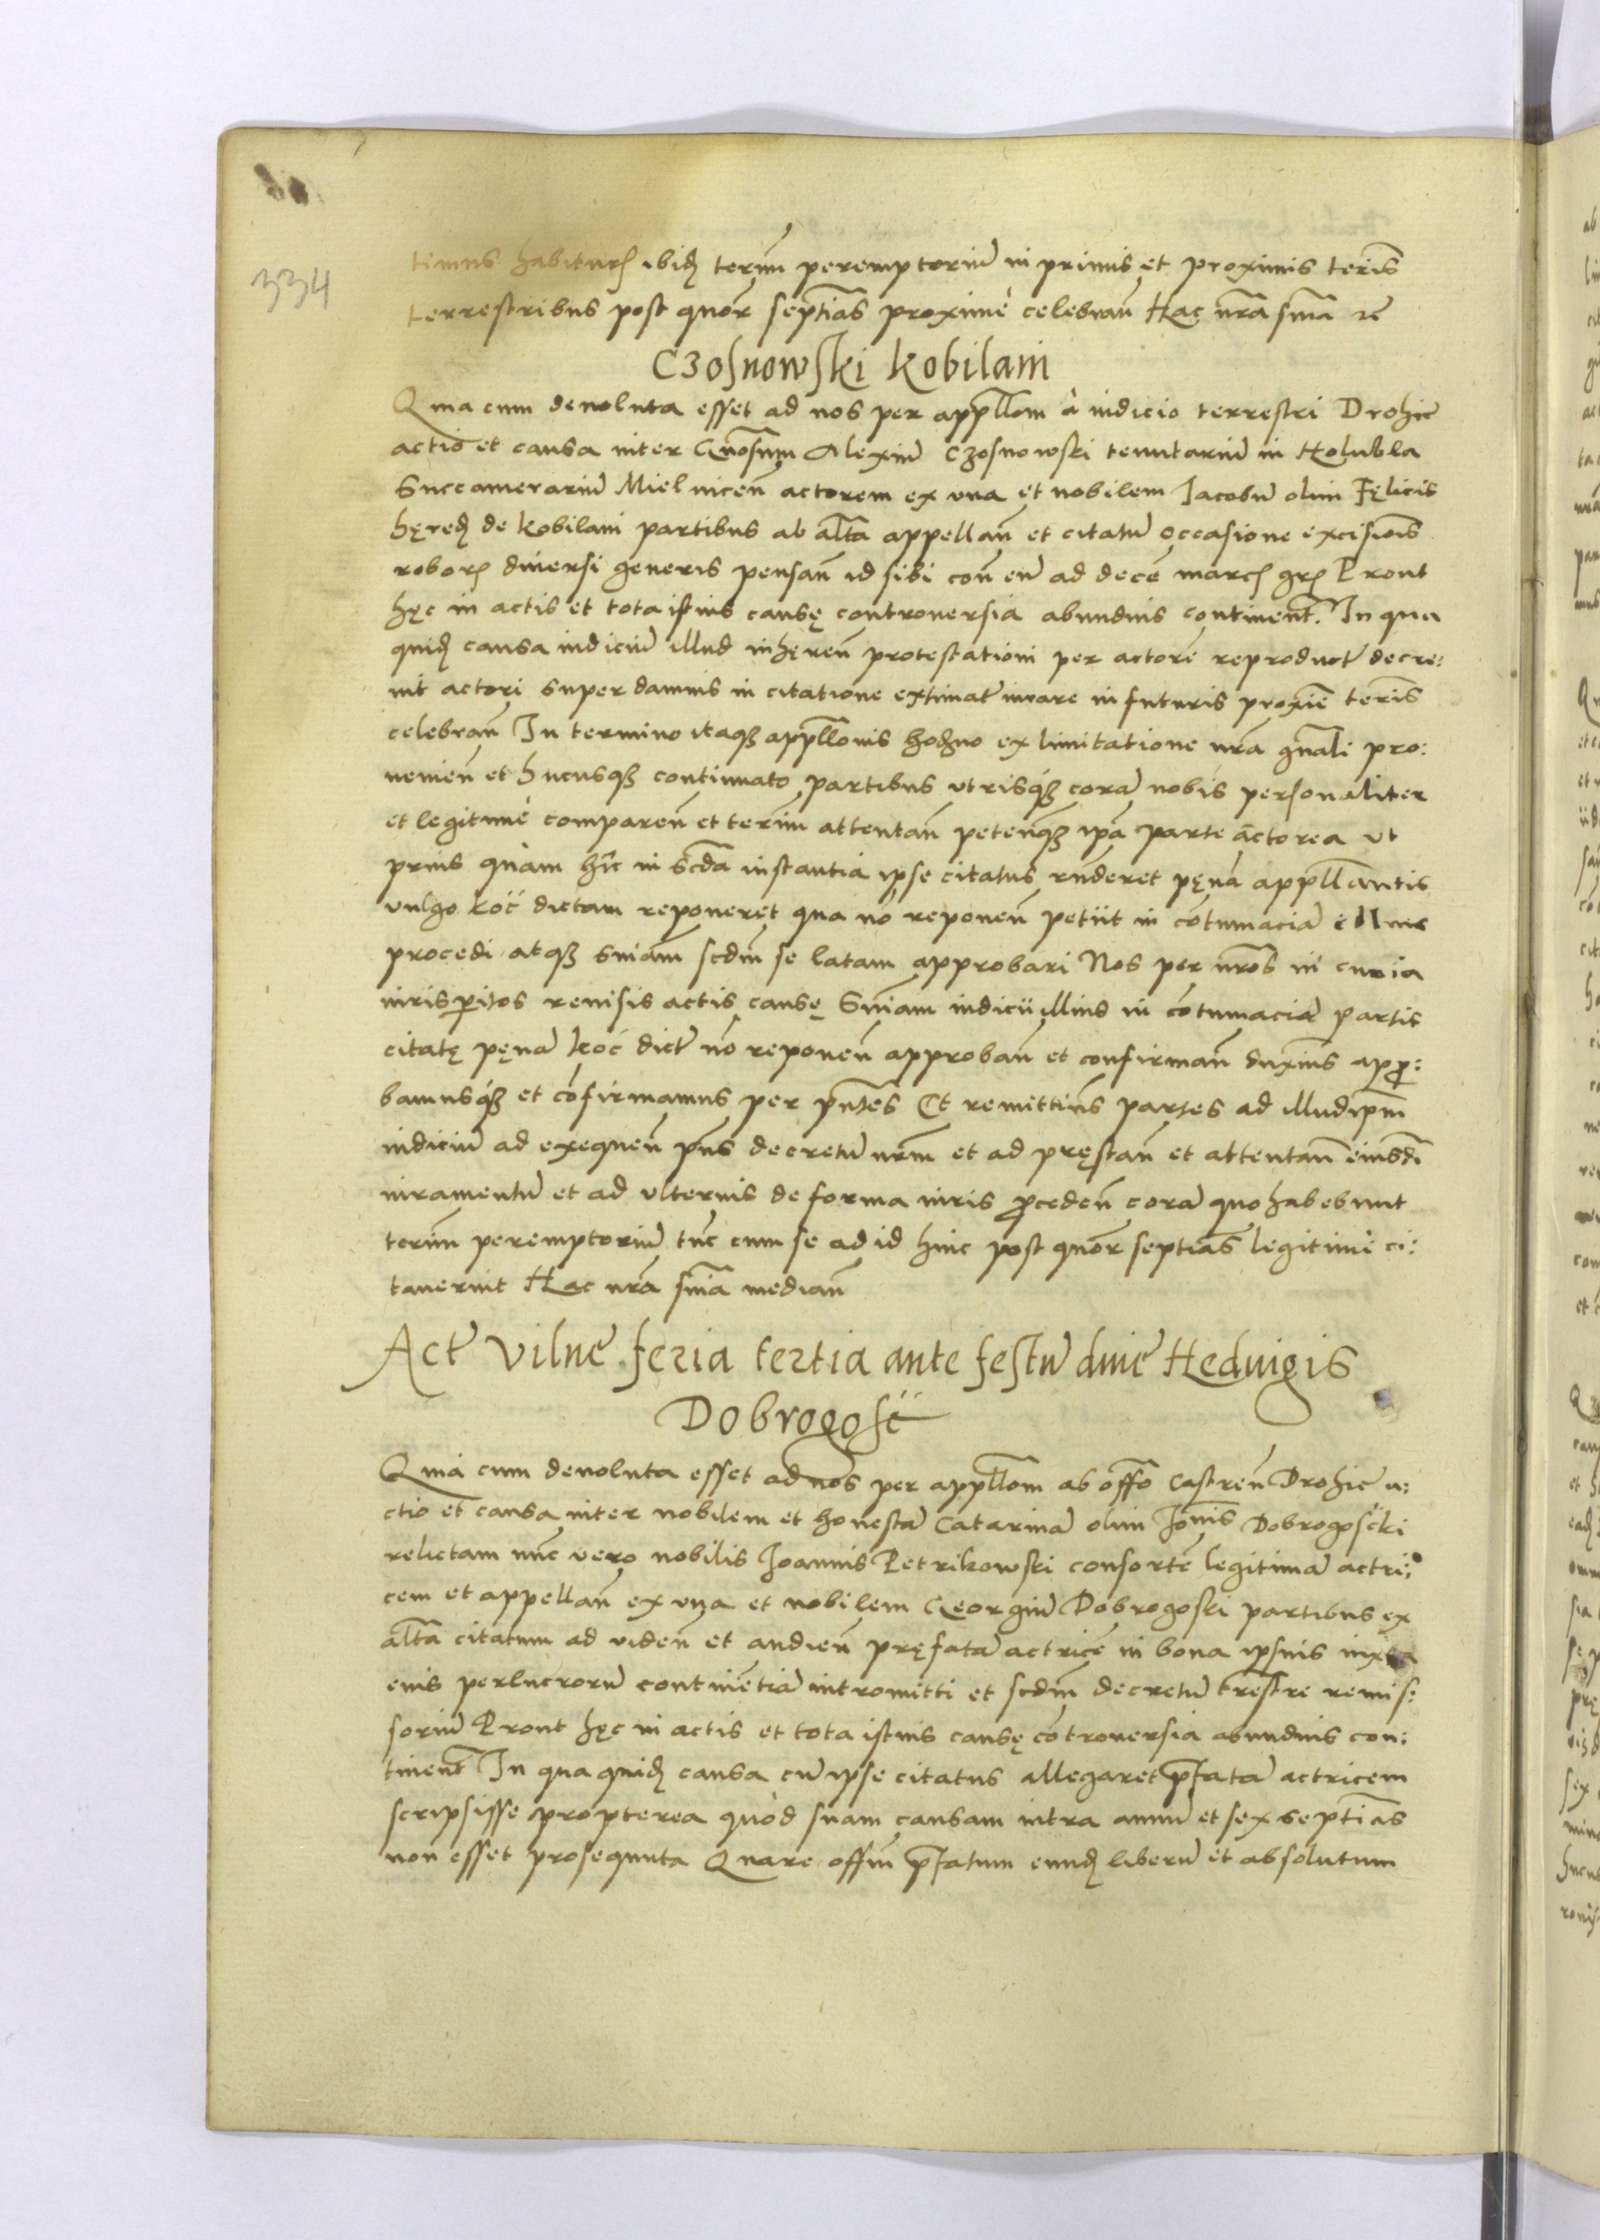 334
timus habitur ibid term peremptoriu in primis et proximis teris
terrestribus post quor septias proxime celebran Hac nra sma
Czosnowski Kobilani
Quia cum devoluta esset ad nos per appllom a iudicio terrestri Drohic
actio et causa inter Gnosum Alexiu Czosnowski tenutariu in Holubla
Succamerariu Mielnicen actorem ex una et nobilem Jacobu olim Felicis
hęred de Kobilani partibus ab alta appellan et citatu occasione excisiois
robor diuersi generis pensan id sibi con eu ad dece marc gr Prout
hęc in actis et tota istius causę controuersia abundius continent. In qua
quid causa iudiciu illud inhęren protestationi per actore reproduct decre:
uit actori super damnis in citatione extimat iurare in futuris proxie teris
celebran In termino itaq appllonis hodno ex limitatione nra gnali pro:
uenien et hucusq continuato partibus utrisq cora nobis personaliter
et legitime comparen et term attentan petenq ipa parte actorea ut
prius quam hic in scda instantia ipse citatus rnderet pęna appllantis
vulgo koc dictam reponeret qua no reponen petiit in cotumacia illius
procedi atq sniam scdm se latam approbari Nos per nros in curia
iurisperitos reuisis actis causę Sniam iudicii illius in cotumacia partis
citatę pęna koc dict no reponen approban et confirman duximus appro:
bamusq et cofirmamus per pntes Et remittimus partes ad illud ipm
iudiciu ad exequen pns decretu nrm et ad pręstan et attentan eiusdi
iuramentu et ad ulterius de forma iuris proceden cora quo habebunt
term peremptoriu tuc cum se ad id hinc post quor septias legitime ci:
tauerint Hac nra snia median
Act Vilne feria tertia ante festu diuę Heduigis
Dobrogosc
Quia cum deuoluta esset ad nos per appllom ab offo Castren Drohic a:
ctio et causa inter nobilem et honesta Catarina olim Jonis Dobrogoscki
relictam nuc vero nobilis Joannis Petrikowski consorte legitima actri:
cem et appellan ex una et nobilem Georgiu Dobrogoski partibus ex
alta citatum ad viden et audien pręfata actrice in bona ipsius iuxta
eius perlucroru continentia intromitti et scdm decretu trestre remis:
soriu Prout hęc in actis et tota istius causę controuersia abundius con:
tinent In qua quid causa cu ipse citatus allegaret pfata actricem
scripsisse propterea quod suam causam intra annu et sex septias
non esset prosequuta Quare offm pfatum eund liberu et absolutum